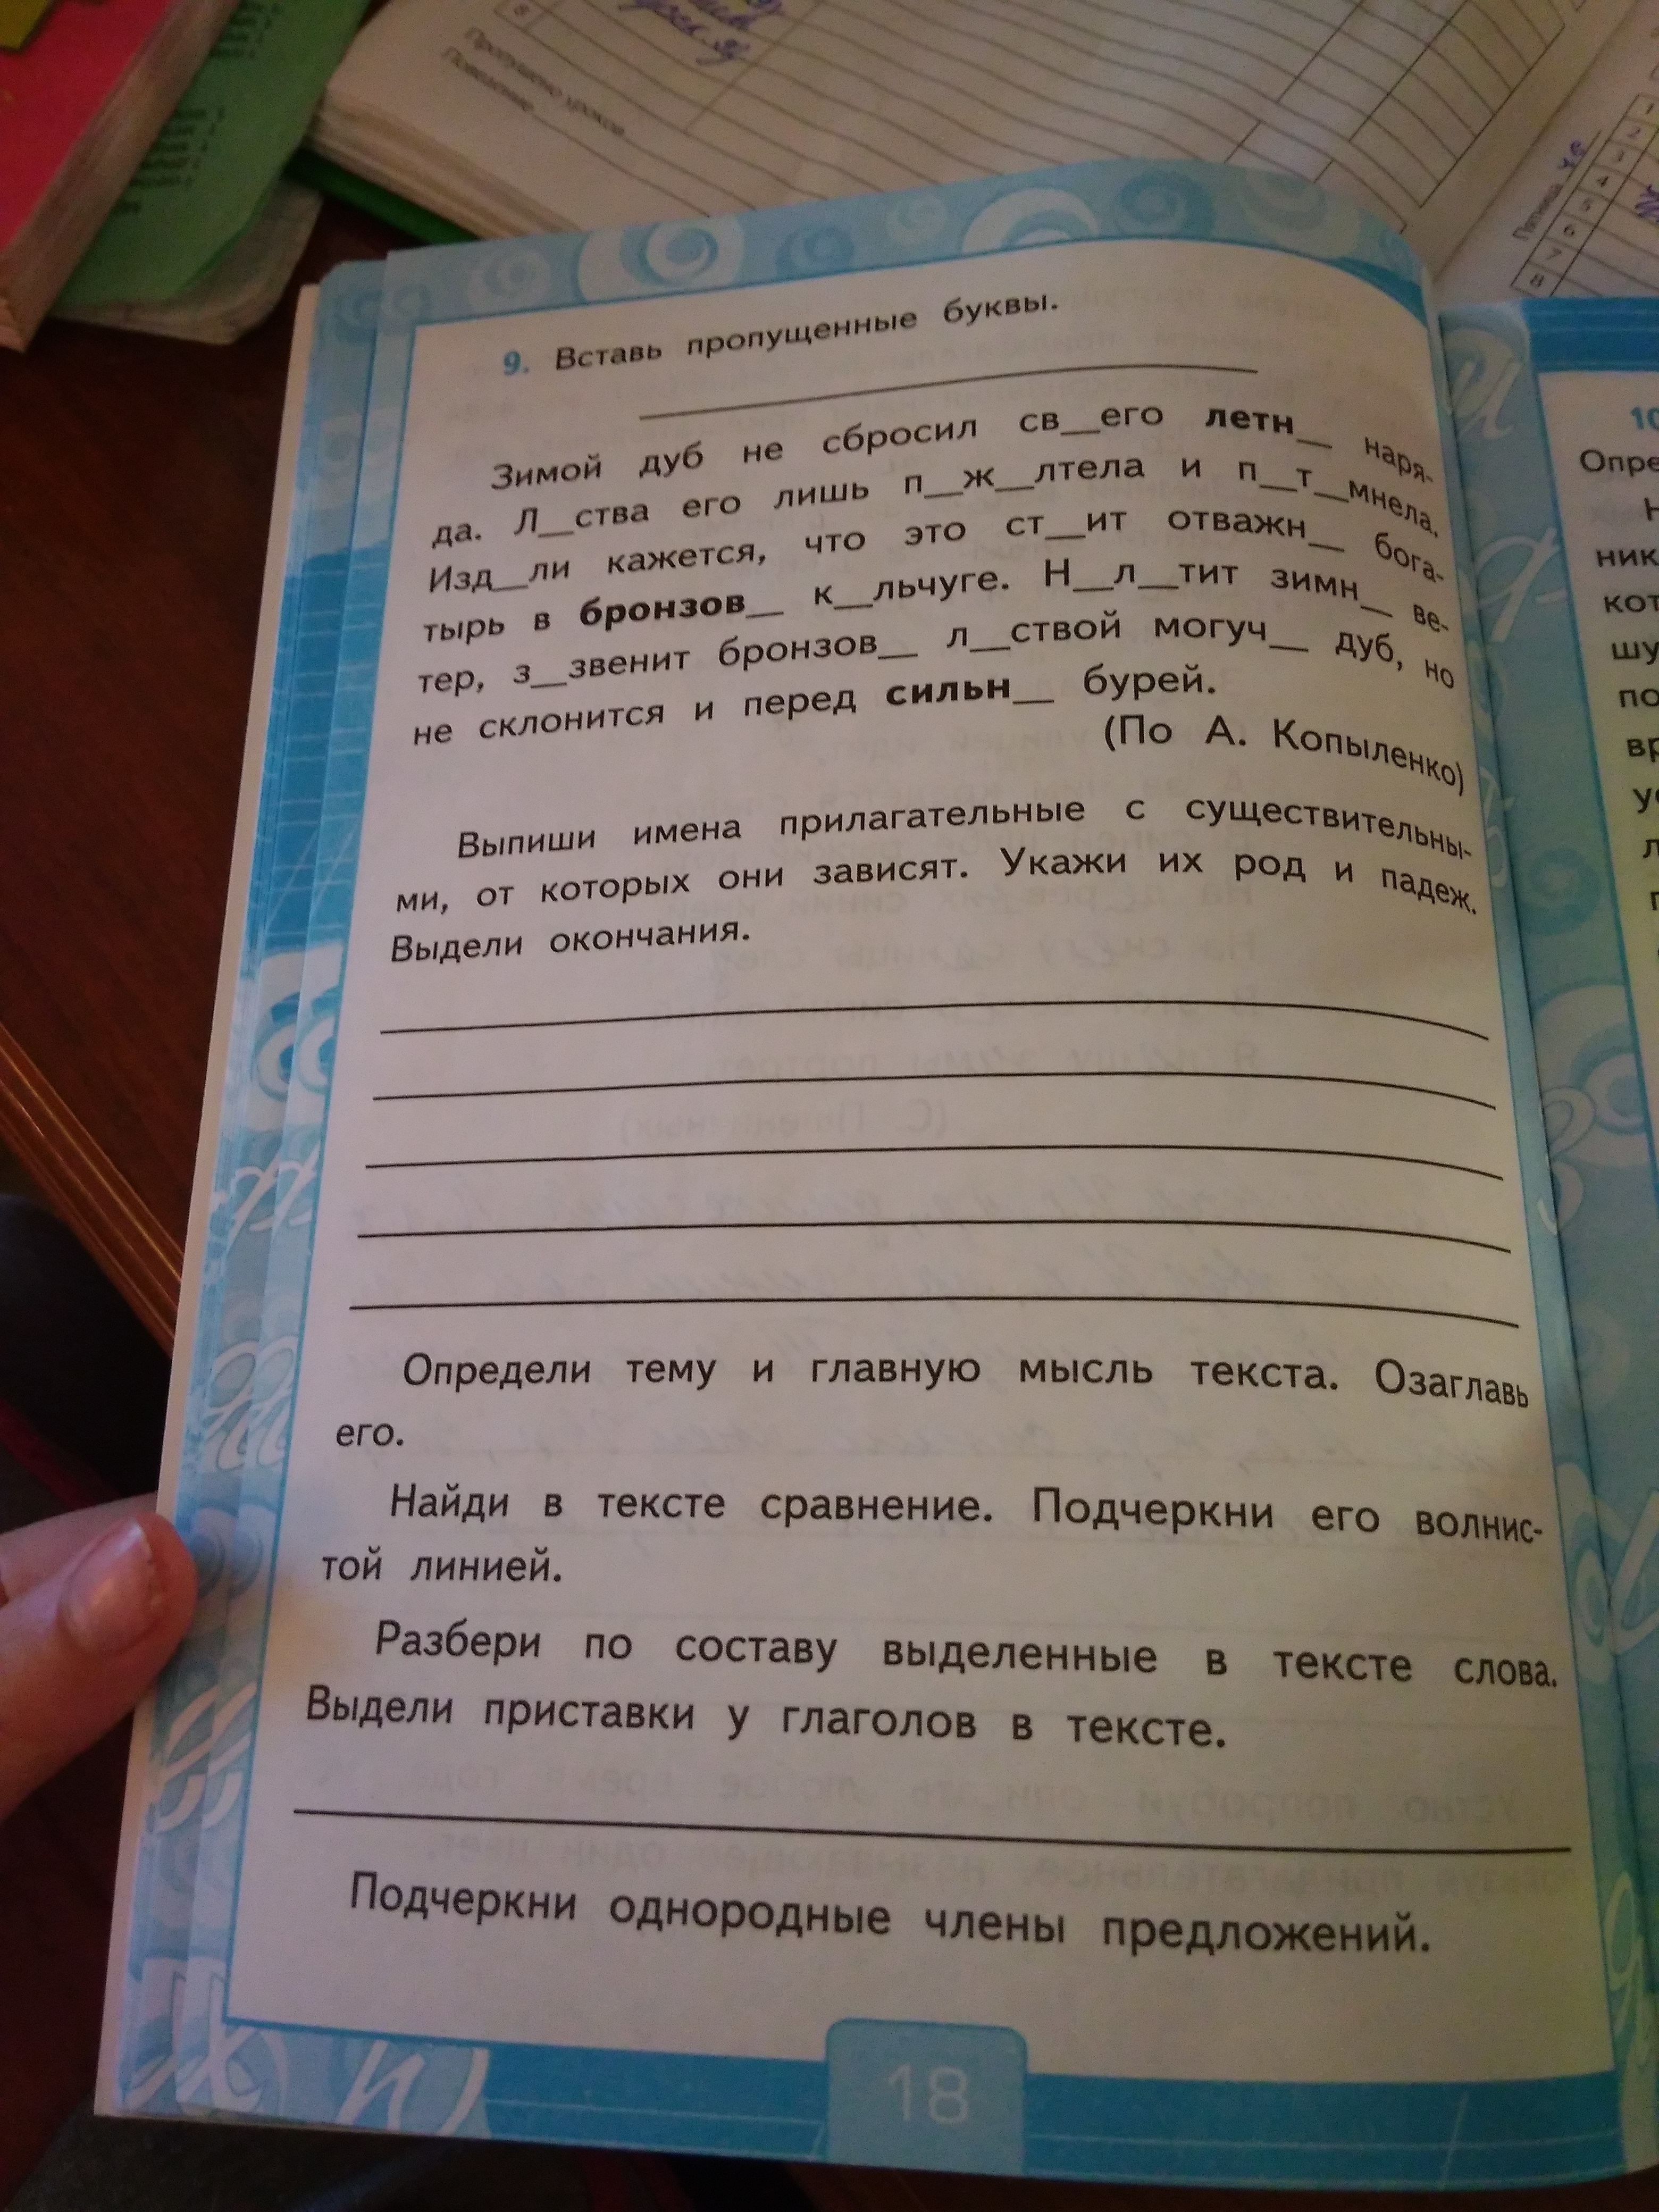 Пропущено уроков
Поведение
8
Пятница
1
2
3
4
5
6
7
8
9. Вставь пропущенные буквы.
Зимой дуб не сбросил св__его летн__ наря-
да. Л__ства его лишь п__ж__лтела и п__т__мнела.
Изд__ли кажется, что это ст__ит отважн__ бога-
тырь в бронзов__ к__льчуге. Н__л__тит зимн__ ве-
тер, з__звенит бронзов__ л__ствой могуч__ дуб, но
не склонится и перед сильн__ бурей.
(По А. Копыленко)
Выпиши имена прилагательные с существительны-
ми, от которых они зависят. Укажи их род и падеж.
Выдели окончания.
Определи тему и главную мысль текста. Озаглавь
его.
Найди в тексте сравнение. Подчеркни его волнис-
той линией.
Разбери по составу выделенные в тексте слова.
Выдели приставки у глаголов в тексте.
Подчеркни однородные члены предложений.
18
10
Опре
ник
кот
шу
по
вр